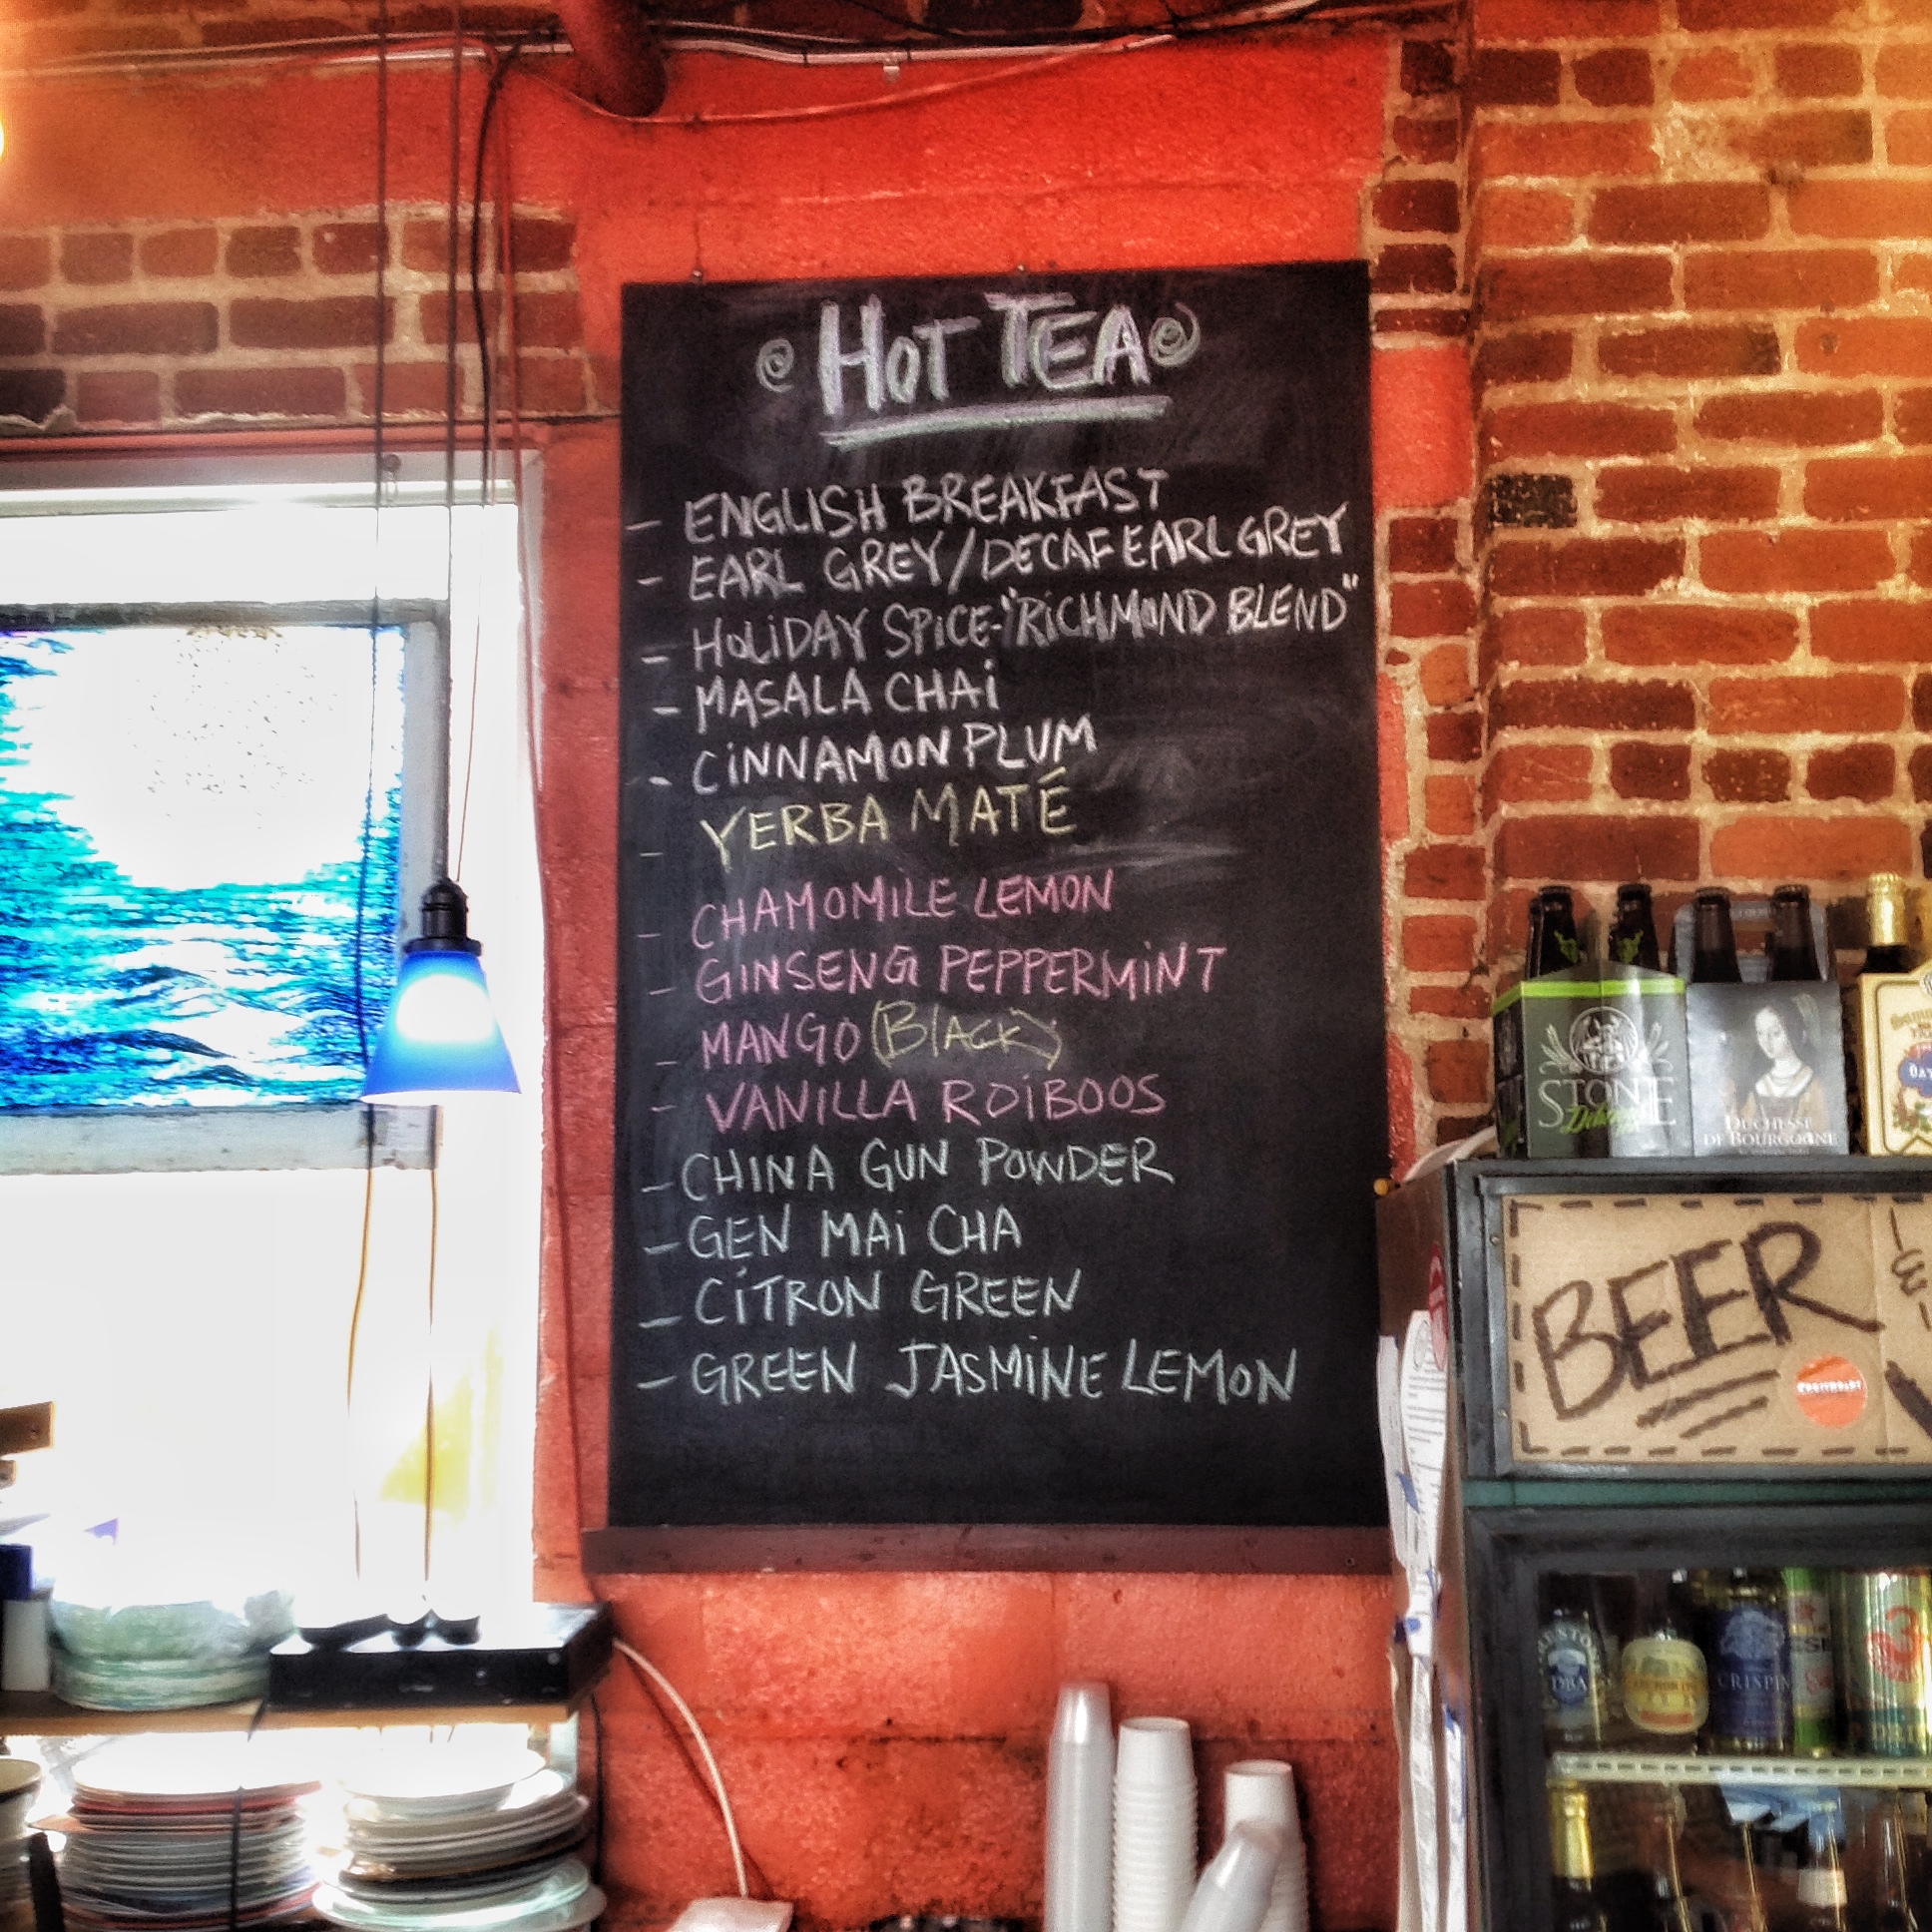 HOT TEA
- ENGLISH BREAKFAST
- EARL GREY/DECAF EARL GREY
- HOLIDAY SPICE-"RICHMOND BLEND"
- MASALA CHAI
- CINNAMON PLUM
- YERBA MATÉ
- CHAMOMILE LEMON
- GINSENG PEPPERMINT
- MANGO (BLACK)
- VANILLA ROIBOOS
- CHINA GUN POWDER
- GEN MAI CHA
- CITRON GREEN
- GREEN JASMINE LEMON
STONE
DUCHESSE
DE BOURGOGNE
BEER
DBA
CRISPIN
3